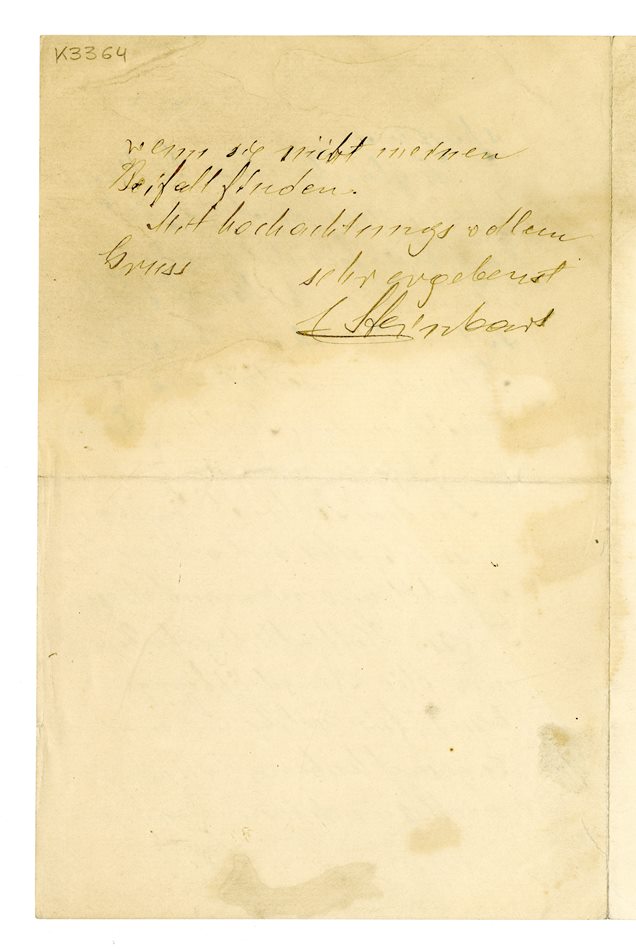 K3364
wenn sie nicht meinen
Beifall finden.
Mit hochachtungsvollem
Gruss sehr ergebenst
Steinbart